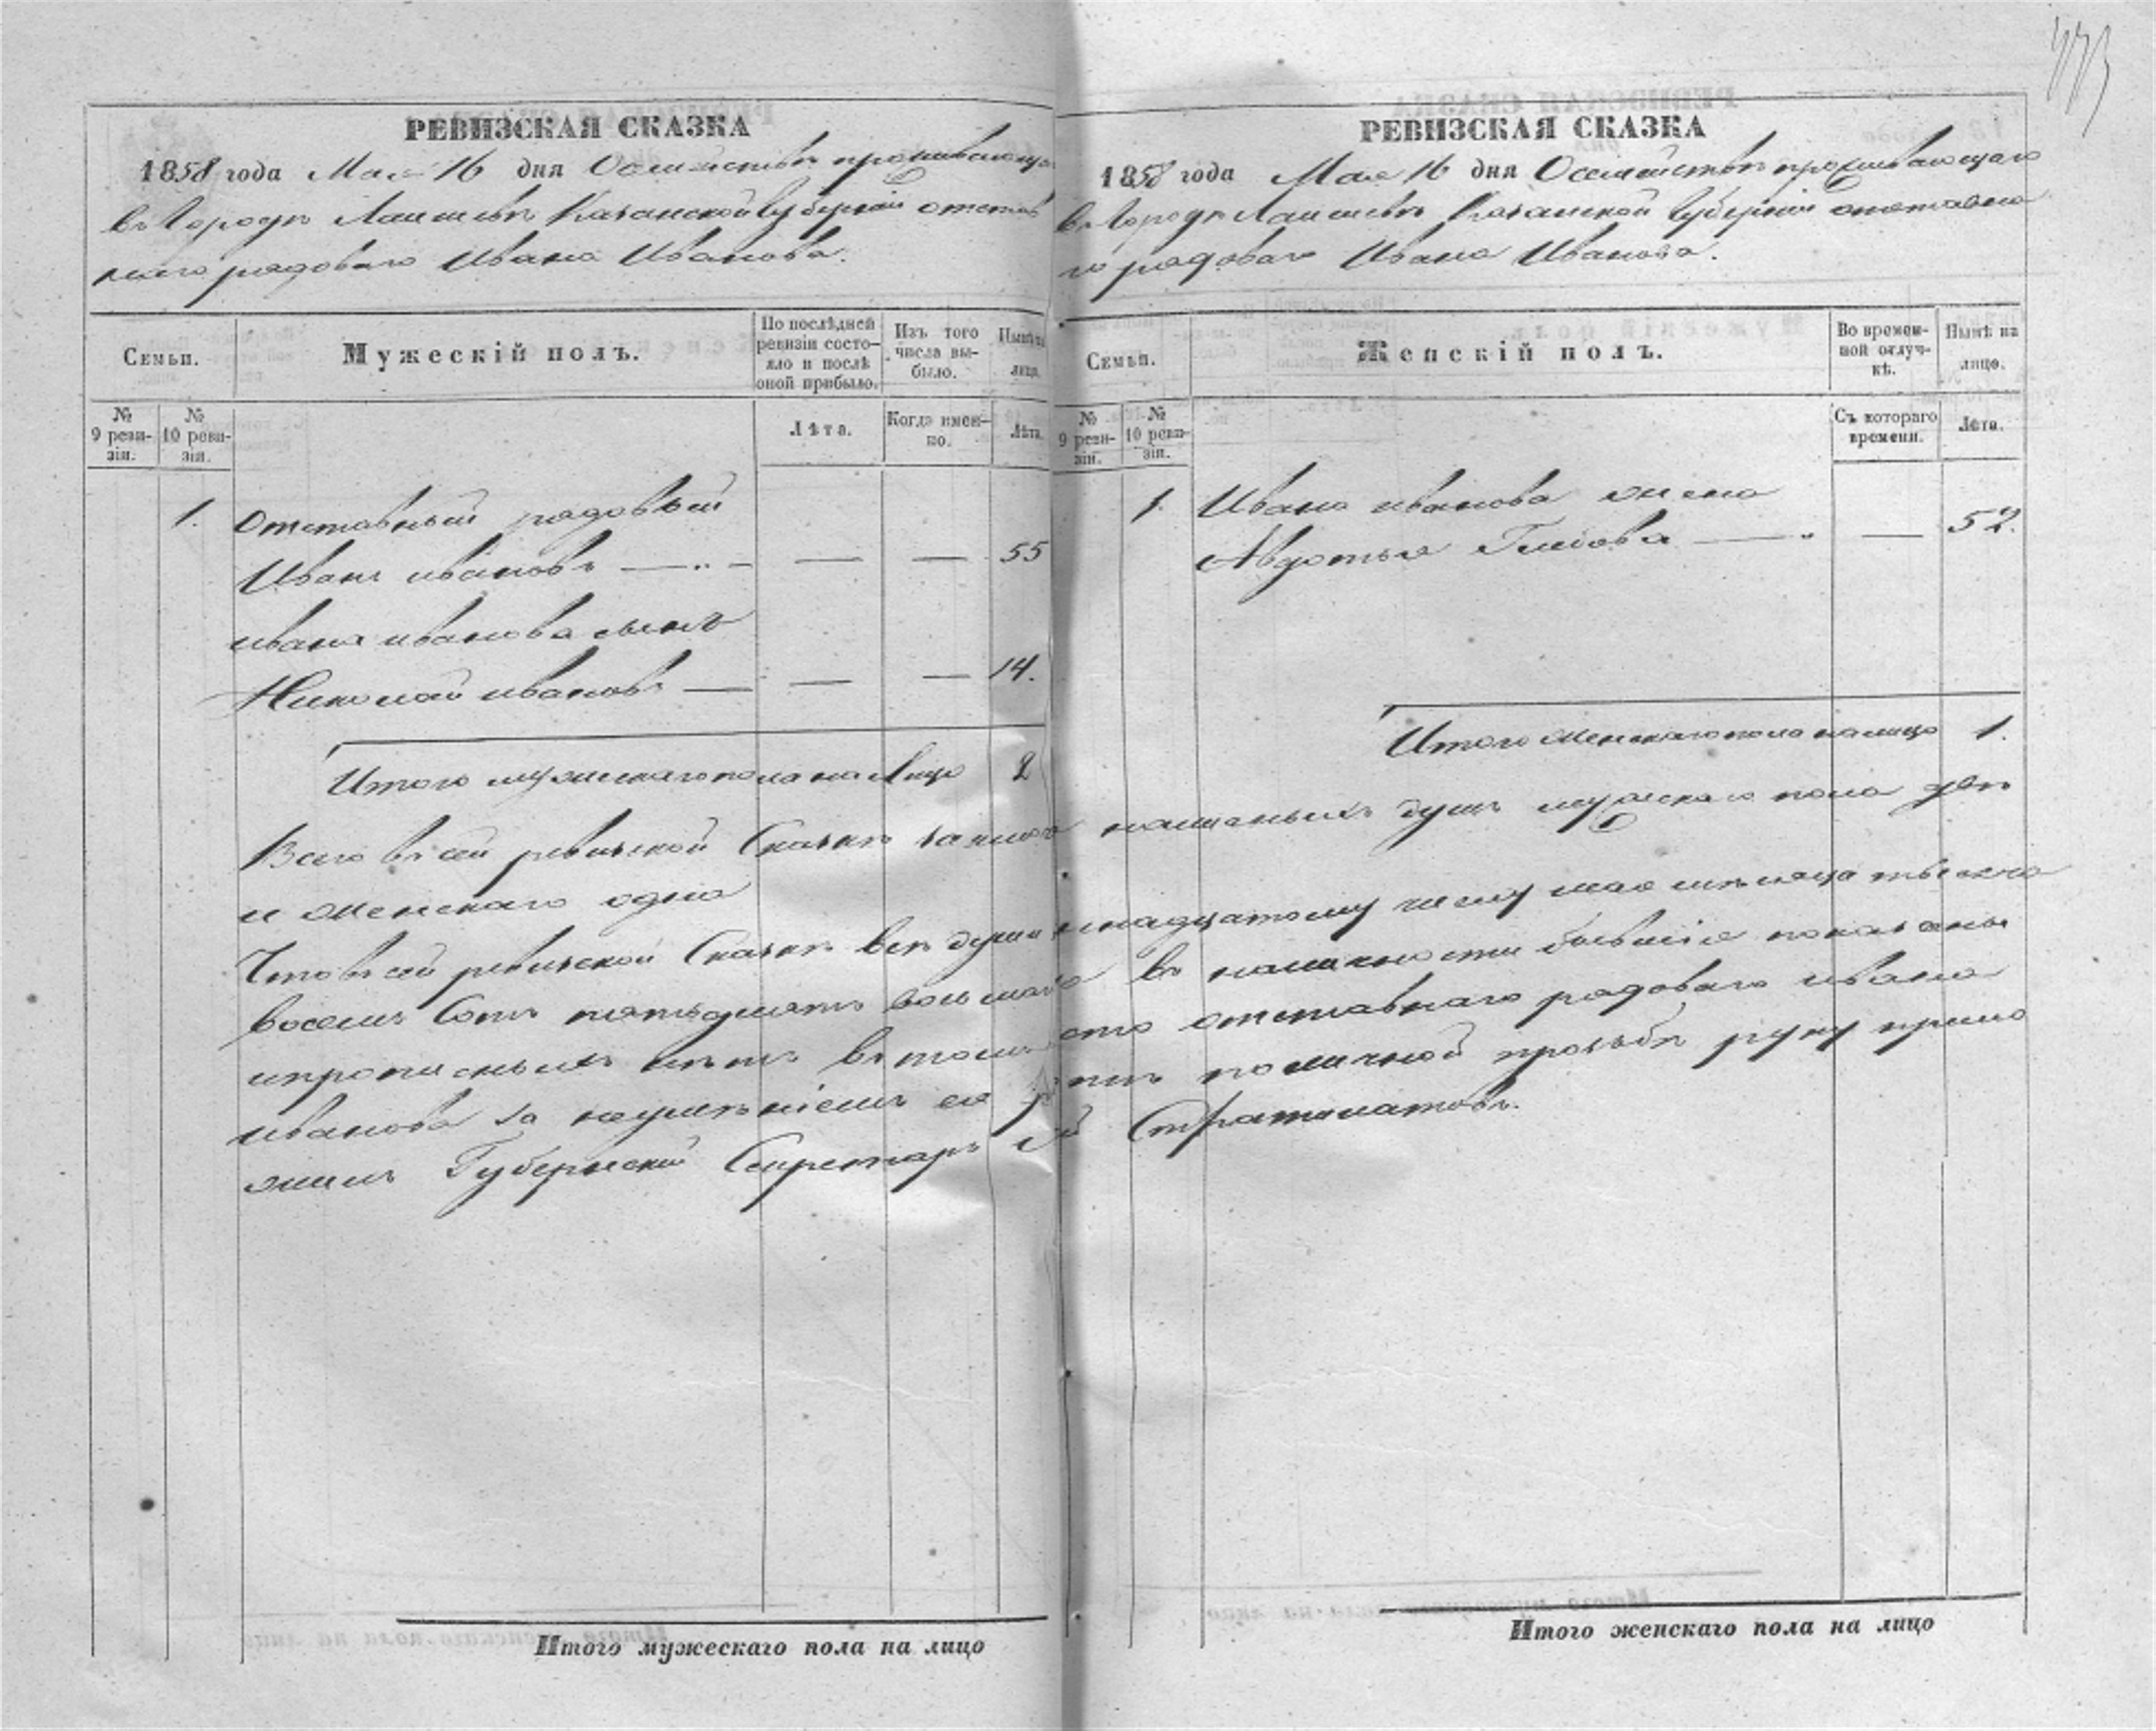 РЕВИЗСКАЯ СКАЗКА
1858 года Мая 16 дня О семействѣ проживающа
въ Городѣ Лаишевѣ Казанской Губерніи отстав
наго рядоваго Ивана Иванова.
Семьи.
Мужескій полъ.
По послѣдней ревизіи состояло и послѣ оной прибыло.
Изъ того числа выбыло.
Нынѣ на лицо.
№ 9 ревизіи.
№ 10 ревизіи.
Лѣта.
Когда именно.
Лѣта.
1. Отставный рядовый
Иванъ ивановъ — — — 55
ивана иванова сынъ
Николай ивановъ — — — 14.
Итого мужескаго пола на Лицо 2
РЕВИЗСКАЯ СКАЗКА
1858 года Мая 16 дня О семействѣ проживающаго
въ Городѣ Лаишевѣ Казанской Губерніи отставна
го рядоваго Ивана Иванова.
Семьи.
Женскій полъ.
Во временной отлучкѣ.
Нынѣ на лицо.
№ 9 ревизіи.
№ 10 ревизіи.
Съ котораго времени.
Лѣта.
1. Ивана иванова жена
Авдотья Глебова — — 52.
Итого женскаго пола налицо 1.
Всего в сей ревизской Сказкѣ наличныхъ душъ мужескаго пола двѣ
и женскаго одна
Что в сей ревизской Сказкѣ всѣ души надцатому числу мая мѣсяца тысяча
восемь Сотъ пятьдесятъ восьмаго въ наличности бывшіе показаны
и прописныхъ нѣтъ въ томъ отставнаго рядоваго ивана
иванова за неумѣніемъ по личной прозьбѣ руку прило
жилъ Губернский Секретарь Стратилатовъ.
Итого мужескаго пола на лицо
Итого женскаго пола на лицо